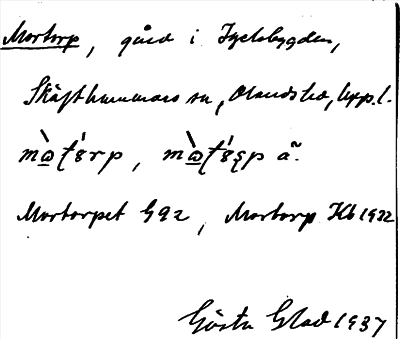 Mortorp, gård i Tyckebygden,
Skäfthammars sn, Olands hd, Uppl.
Mortorpet G92, Mortorp Kb 1922
Gösta Glad 1937